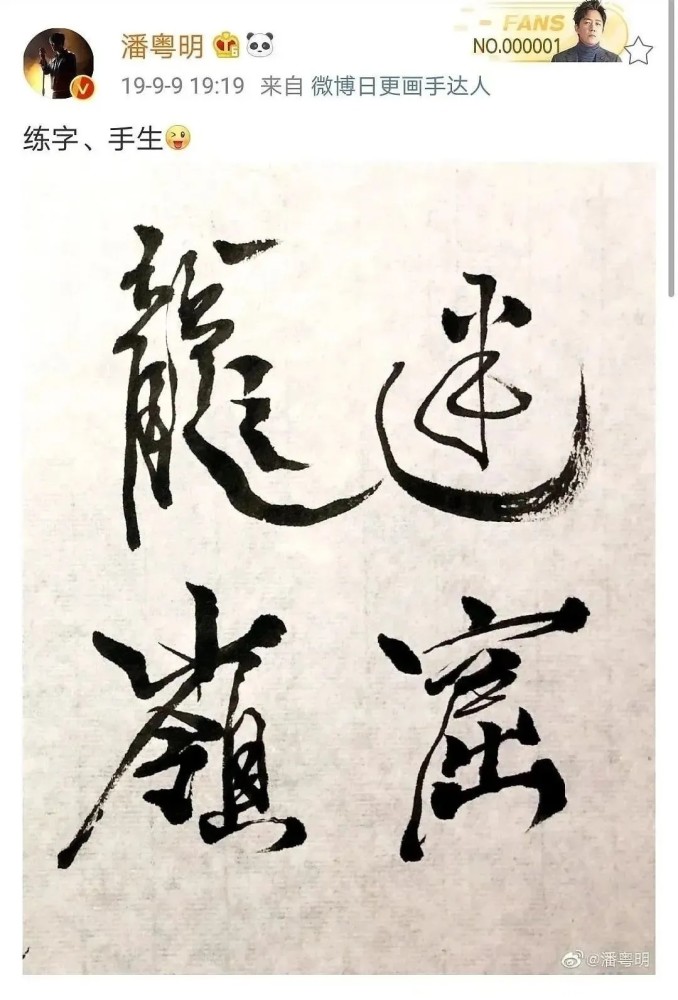 潘粤明
FANS
NO.000001
19-9-9 19:19 来自 微博日更画手达人
练字、手生
龍迷
嶺窟
@潘粤明